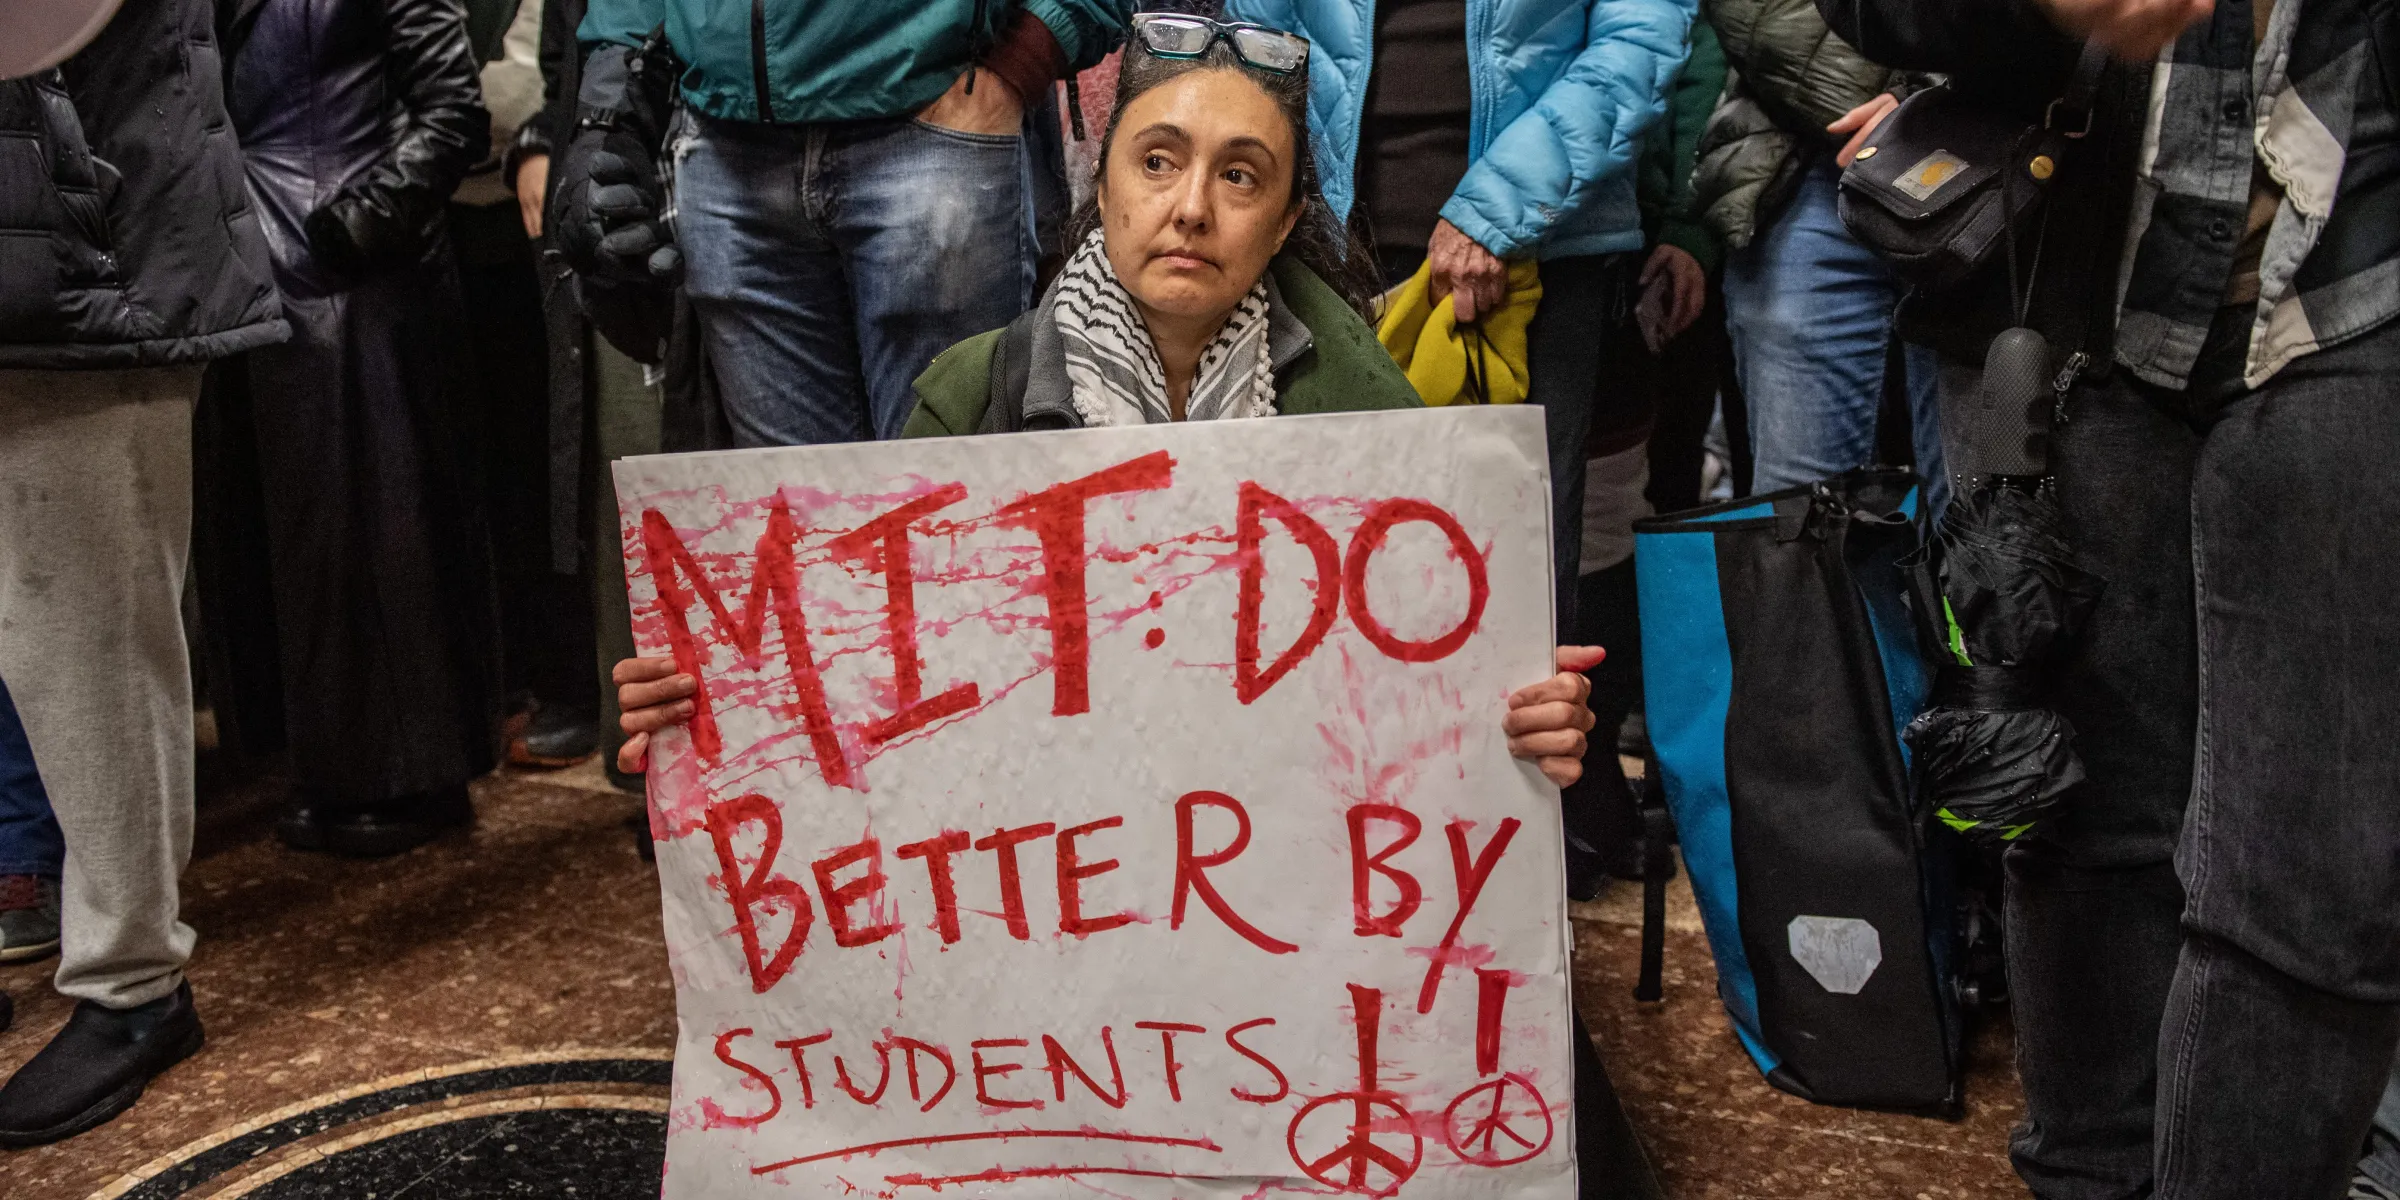 MIT: DO
BETTER BY
STUDENTS!!